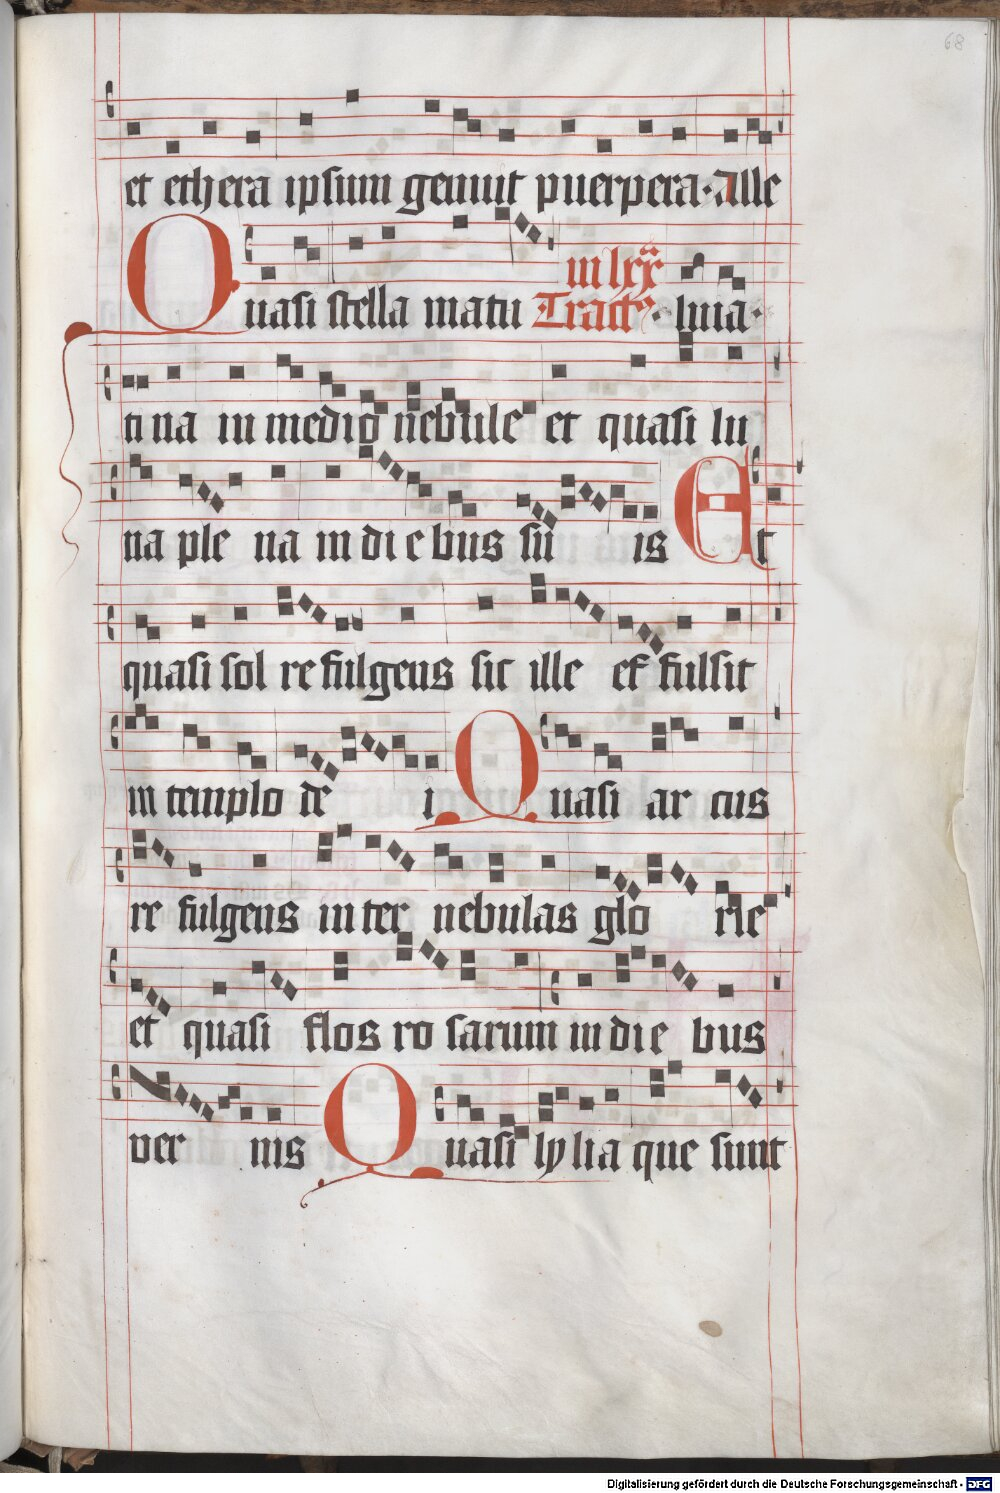 68
et ethera ipsum genuit puerpera · Alle
in lxx
Quasi stella matu Tractꝰ · luia ·
ti na in medio nebule et quasi lu
na ple na in di e bus su is Et
quasi sol re fulgens sit ille ef fulsit
in templo de i Quasi ar cus
re fulgens in ter nebulas glo rie
et quasi flos ro sarum in di e bus
ver nis Quasi ly lia que sunt
Digitalisierung gefördert durch die Deutsche Forschungsgemeinschaft - DFG